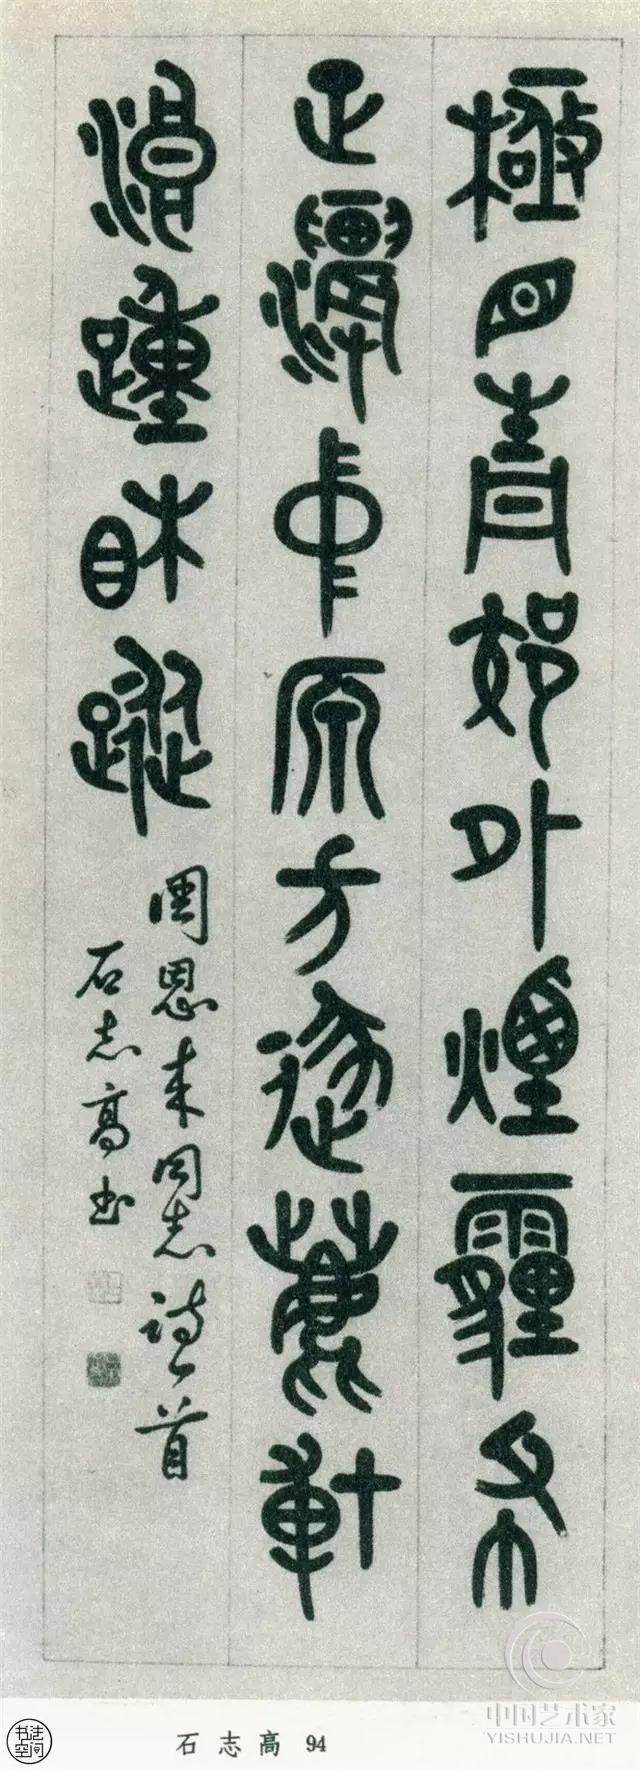 極目青郊外煙霾布
正濃中原方逐鹿博
浪踵相蹤
周恩来同志诗一首
石志高书
石志高 94
书法空间
中国艺术家
YISHUJIA.NET